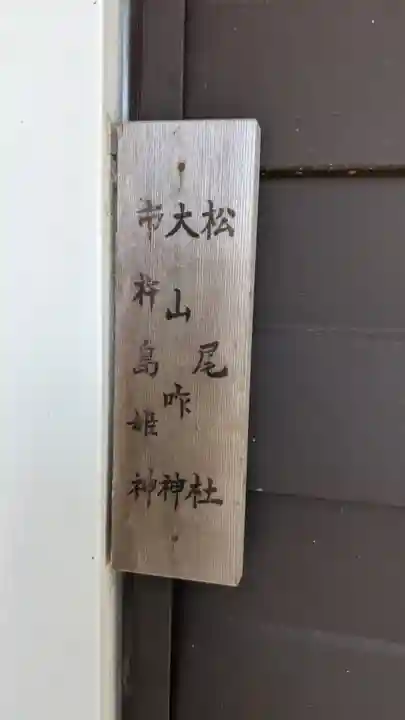 松尾社
大山咋神
市杵島姫神